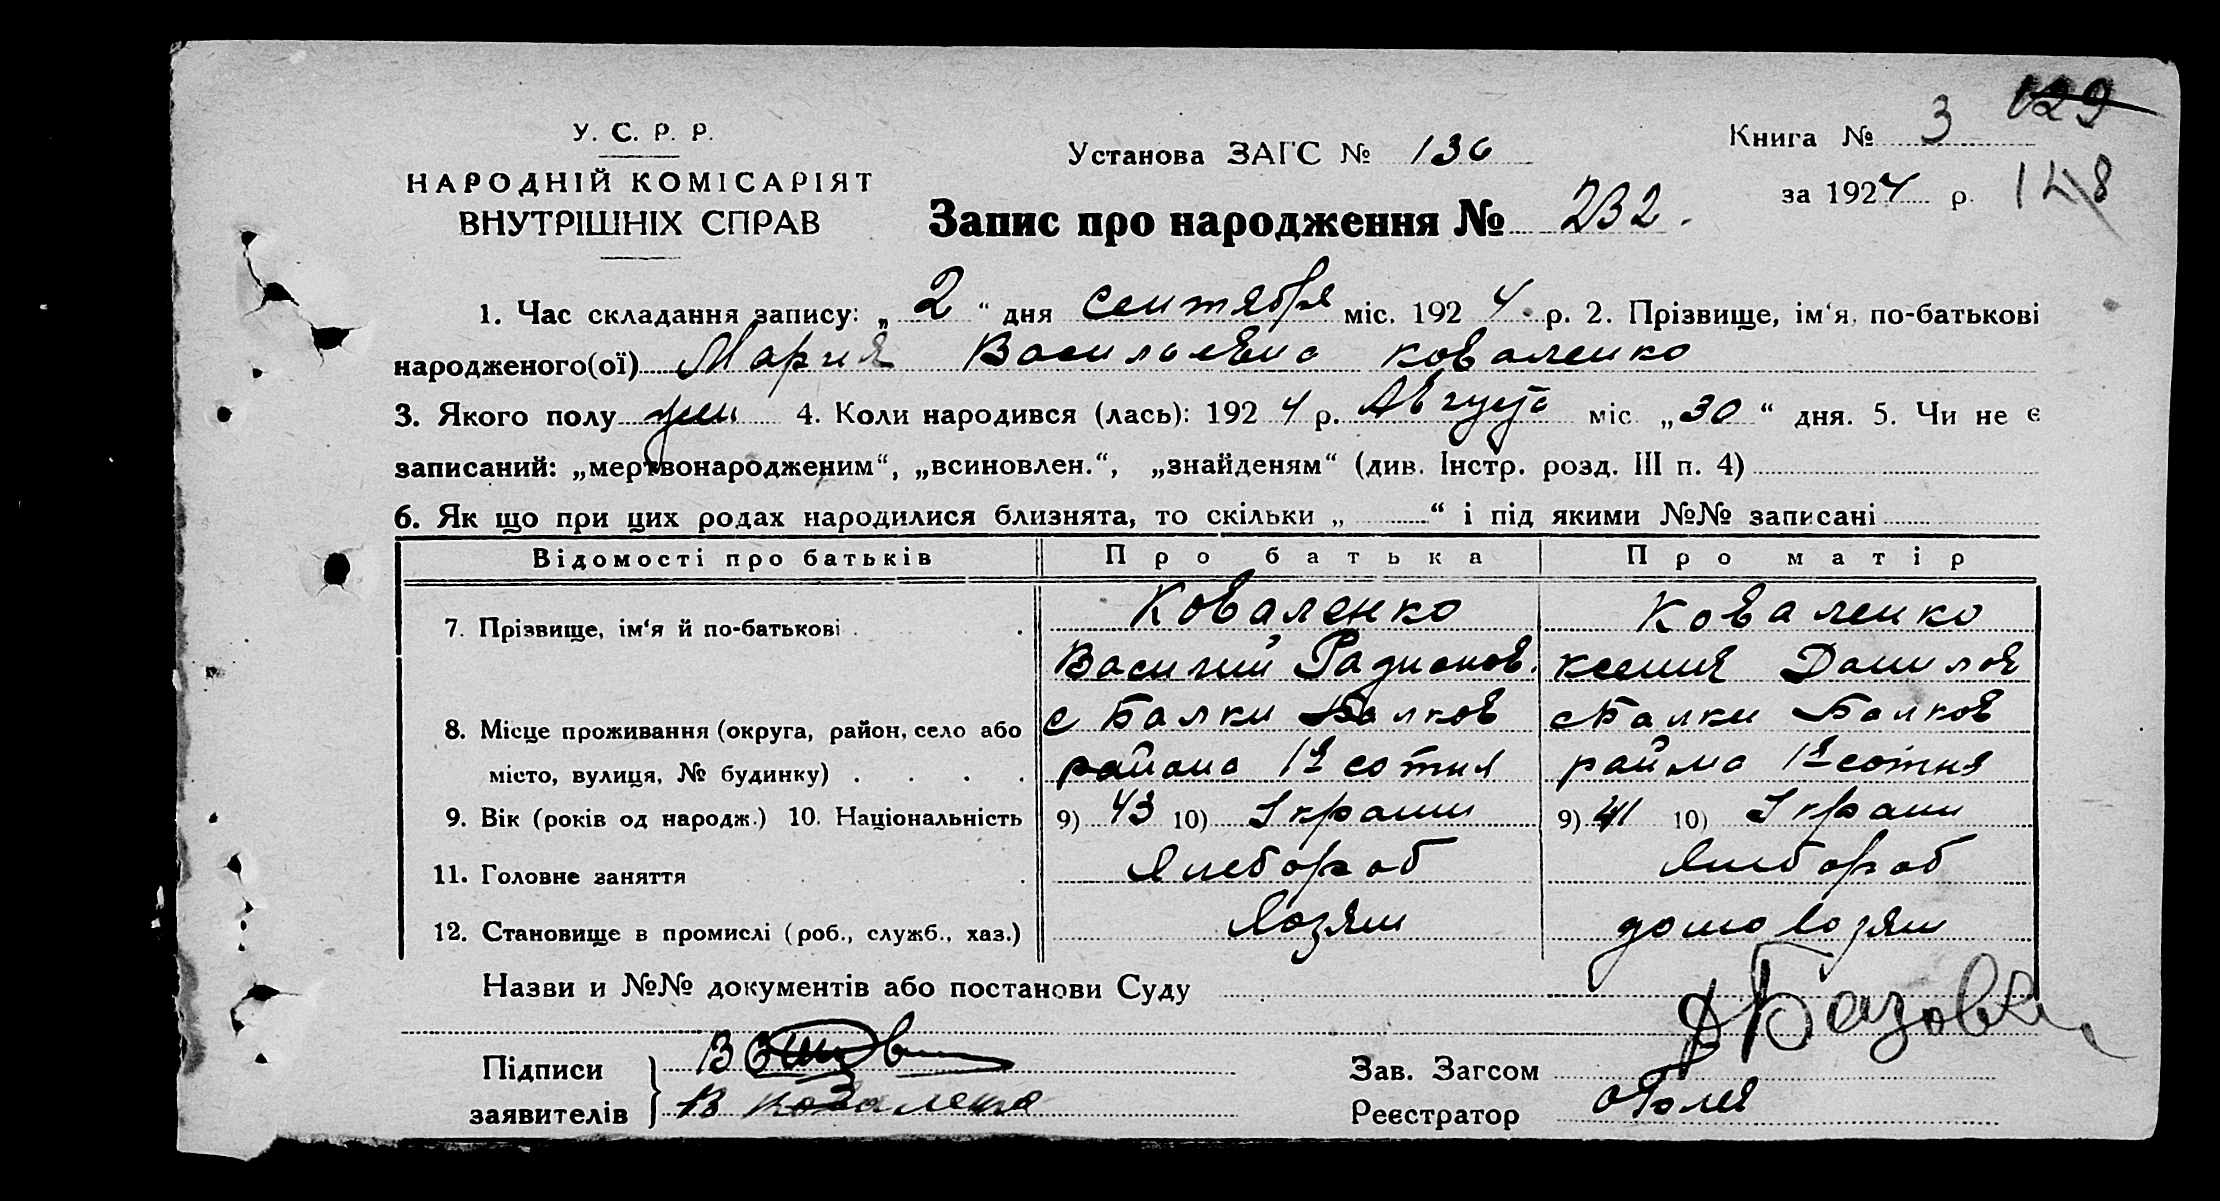 У. С. Р. Р.
НАРОДНІЙ КОМІСАРІЯТ
ВНУТРІШНІХ СПРАВ
Установа ЗАГС № 136
Книга № 3
129
за 1924 р.
148
Запис про народження № 232.
1. Час складання запису: „ 2 “ дня сентября міс. 1924 р. 2. Прізвище, ім'я, по-батькові
народженого(ої) Мария Васильевна Коваленко
3. Якого полу жен 4. Коли народився (лась): 1924 р. Августа міс. „30“ дня. 5. Чи не є
записаний: „мертвонародженим“, „всиновлен.“, „знайденям“ (див. Інстр. розд. III п. 4)
6. Як що при цих родах народилися близнята, то скільки „ “ і під якими №№ записані
Відомості про батьків Про батька Про матір
7. Прізвище, ім'я й по-батькові . . Коваленко Коваленко
Василий Радионов. Ксения Данилов
8. Місце проживання (округа, район, село або с Балки Балков с Балки Балков
місто, вулиця, № будинку) . . . . района 1я сотня района 1я сотня
9. Вік (років од народж.) 10. Національність 9) 43 10) Украин 9) 41 10) Украин
11. Головне заняття Хлебороб Хлебороб
12. Становище в промислі (роб., служб., хаз.) Хозяин домохозяин
Назви и №№ документів або постанови Суду
Підписи
заявителів В Коваленко
Зав. Загсом
Реєстратор